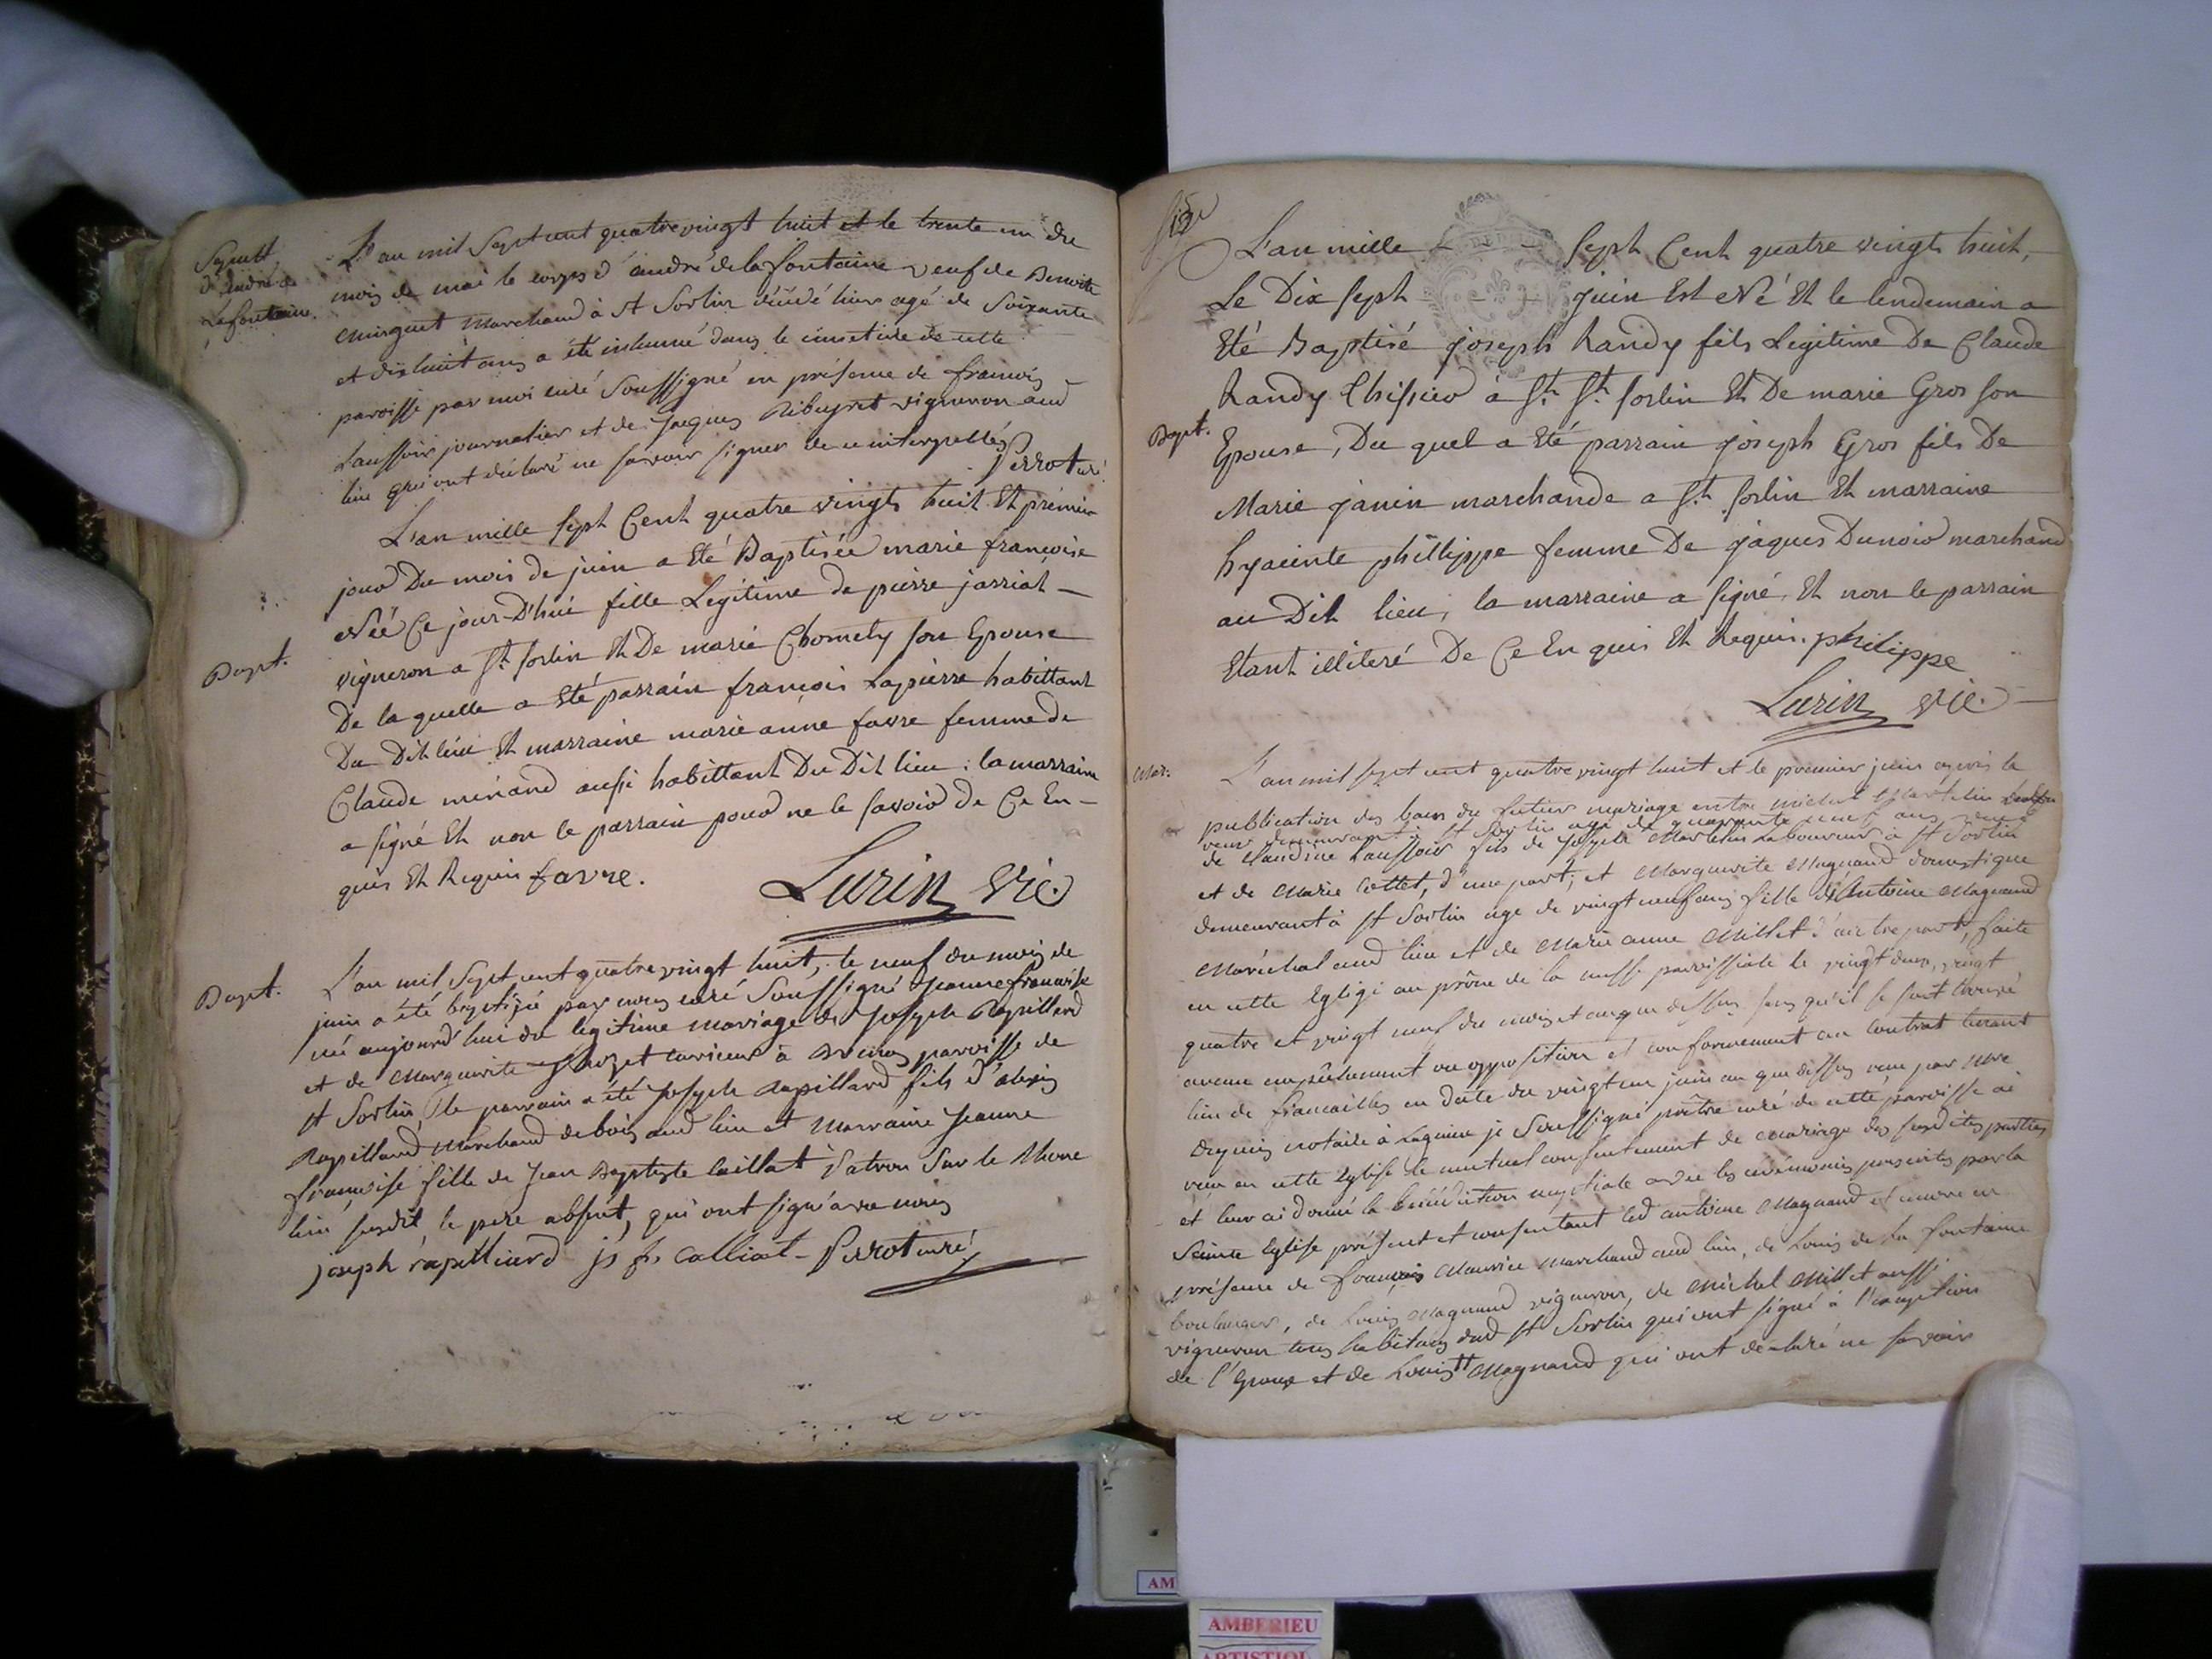 Sepult.
d'andré de
Lafontaine.
L'an mil Sept cent quatre vingt huit et le trente un du
mois de mai le corps d'andré de la fontaine veuf de Benoite
Minguet Marchand à St Sorlin décédé hier agé de Soixante
et dixhuit ans a été inhumé dans le cimetiere de cette
paroisse par moi curé Soussigné en présence de francois
Laussoir journalier et de Jacques Ribeyret vigneron aud
lieu qui ont déclaré ne savoir signer de ce interpellés
Perrot curé
Bapt.
L'an mille sept Cent quatre vingts huit Et premier
jour Du mois de juin a Eté Baptisée marie françoise
Née Ce jour-D'hui fille Legitime de pierre jarriat –
vigneron a St. sorlin Et De marie Chomety son Epouse
De la quelle a Eté parrain francois Lapierre habittant
Du Dit lieu Et marraine marie anne favre femme de
Claude miriand aussi habittant Du Dit lieu : la marraine
a signé Et non le parrain pour ne le savoir De Ce En-
quis Et Requis favre.
Lurin vic.
Bapt.
L'an mil Sept cent quatre vingt huit, le neuf du mois de
juin a été baptisée par nous curé Soussigné Jeanne francoise
née aujourd'hui du legitime mariage de Joseph Rapillard
et de Marguerite carrieur à paroisse de
St Sorlin, le parrain a été Joseph Rapillard fils d'alexis
Rapillard Marchand de bois aud lieu et Marraine Jeanne
francoise fille de Jean Baptiste Caillat Patron Sur le Rhone
lieu susdit, le pere absent, qui ont signé avec nous
joseph rapilliard js fs calliat - Perrot curé
L'an mille sept Cent quatre vingts huit,
Le Dix sept juin Est Né Et le lendemain a
Eté Baptisé joseph Randy fils Legitime De Claude
Randy à St. St. sorlin Et De marie Gros son
Bapt.
Epouse, Du quel a Eté parrain joseph Gros fils De
Marie janin marchande a St. sorlin Et marraine
hyacinte phillippe femme De jaques Dunoir marchand
au Dit lieu, la marraine a signé Et non le parrain
Etant illiteré De Ce En quis Et Requis. philippe
Lurin vic.
Mar.
L'an mil sept cent quatre vingt huit et le premier juin après la
publication des bans du futur mariage entre michel Martelin
demeurant à St Sorlin agé de quarante neuf ans veuf
de Claudine Laussoir fils de Joseph Martelin Laboureur à St Sorlin
et de Marie Collet, d'une part ; et Marguerite Magnand domestique
demeurant à St Sorlin age de vingt neuf ans fille d'Antoine Magnand
Maréchal aud lieu et de Marie anne Millet d'autre part, faite
en cette Eglise au prône de la messe paroissiale le vingt deux, vingt
quatre et vingt neuf du mois et an que dessus sans qu'il se soit trouvé
aucun empêchement ou opposition et conformement au contrat tenant
lieu de fiancailles en date du vingt un juin an que dessus recu par Mre
notaire à Lagnieu je Soussigné prêtre curé de cette paroisse ai
recu en cette Eglise le mutuel consentement de mariage des susdites parties
et leur ai donné la bénédiction nuptiale avec les cérémonies prescrites par la
Sainte Eglise présent et consentant led antoine Magnand et encore en
présence de francois Maurice Marchand aud lieu, de Louis de La fontaine
boulanger, de Louis Magnand vigneron, de Michel Millet aussi
vigneron tous habitans dud St Sorlin qui ont signé à l'exception
de l'Epoux et de Louis Magnand qui ont déclaré ne savoir
AM
AMBERIEU